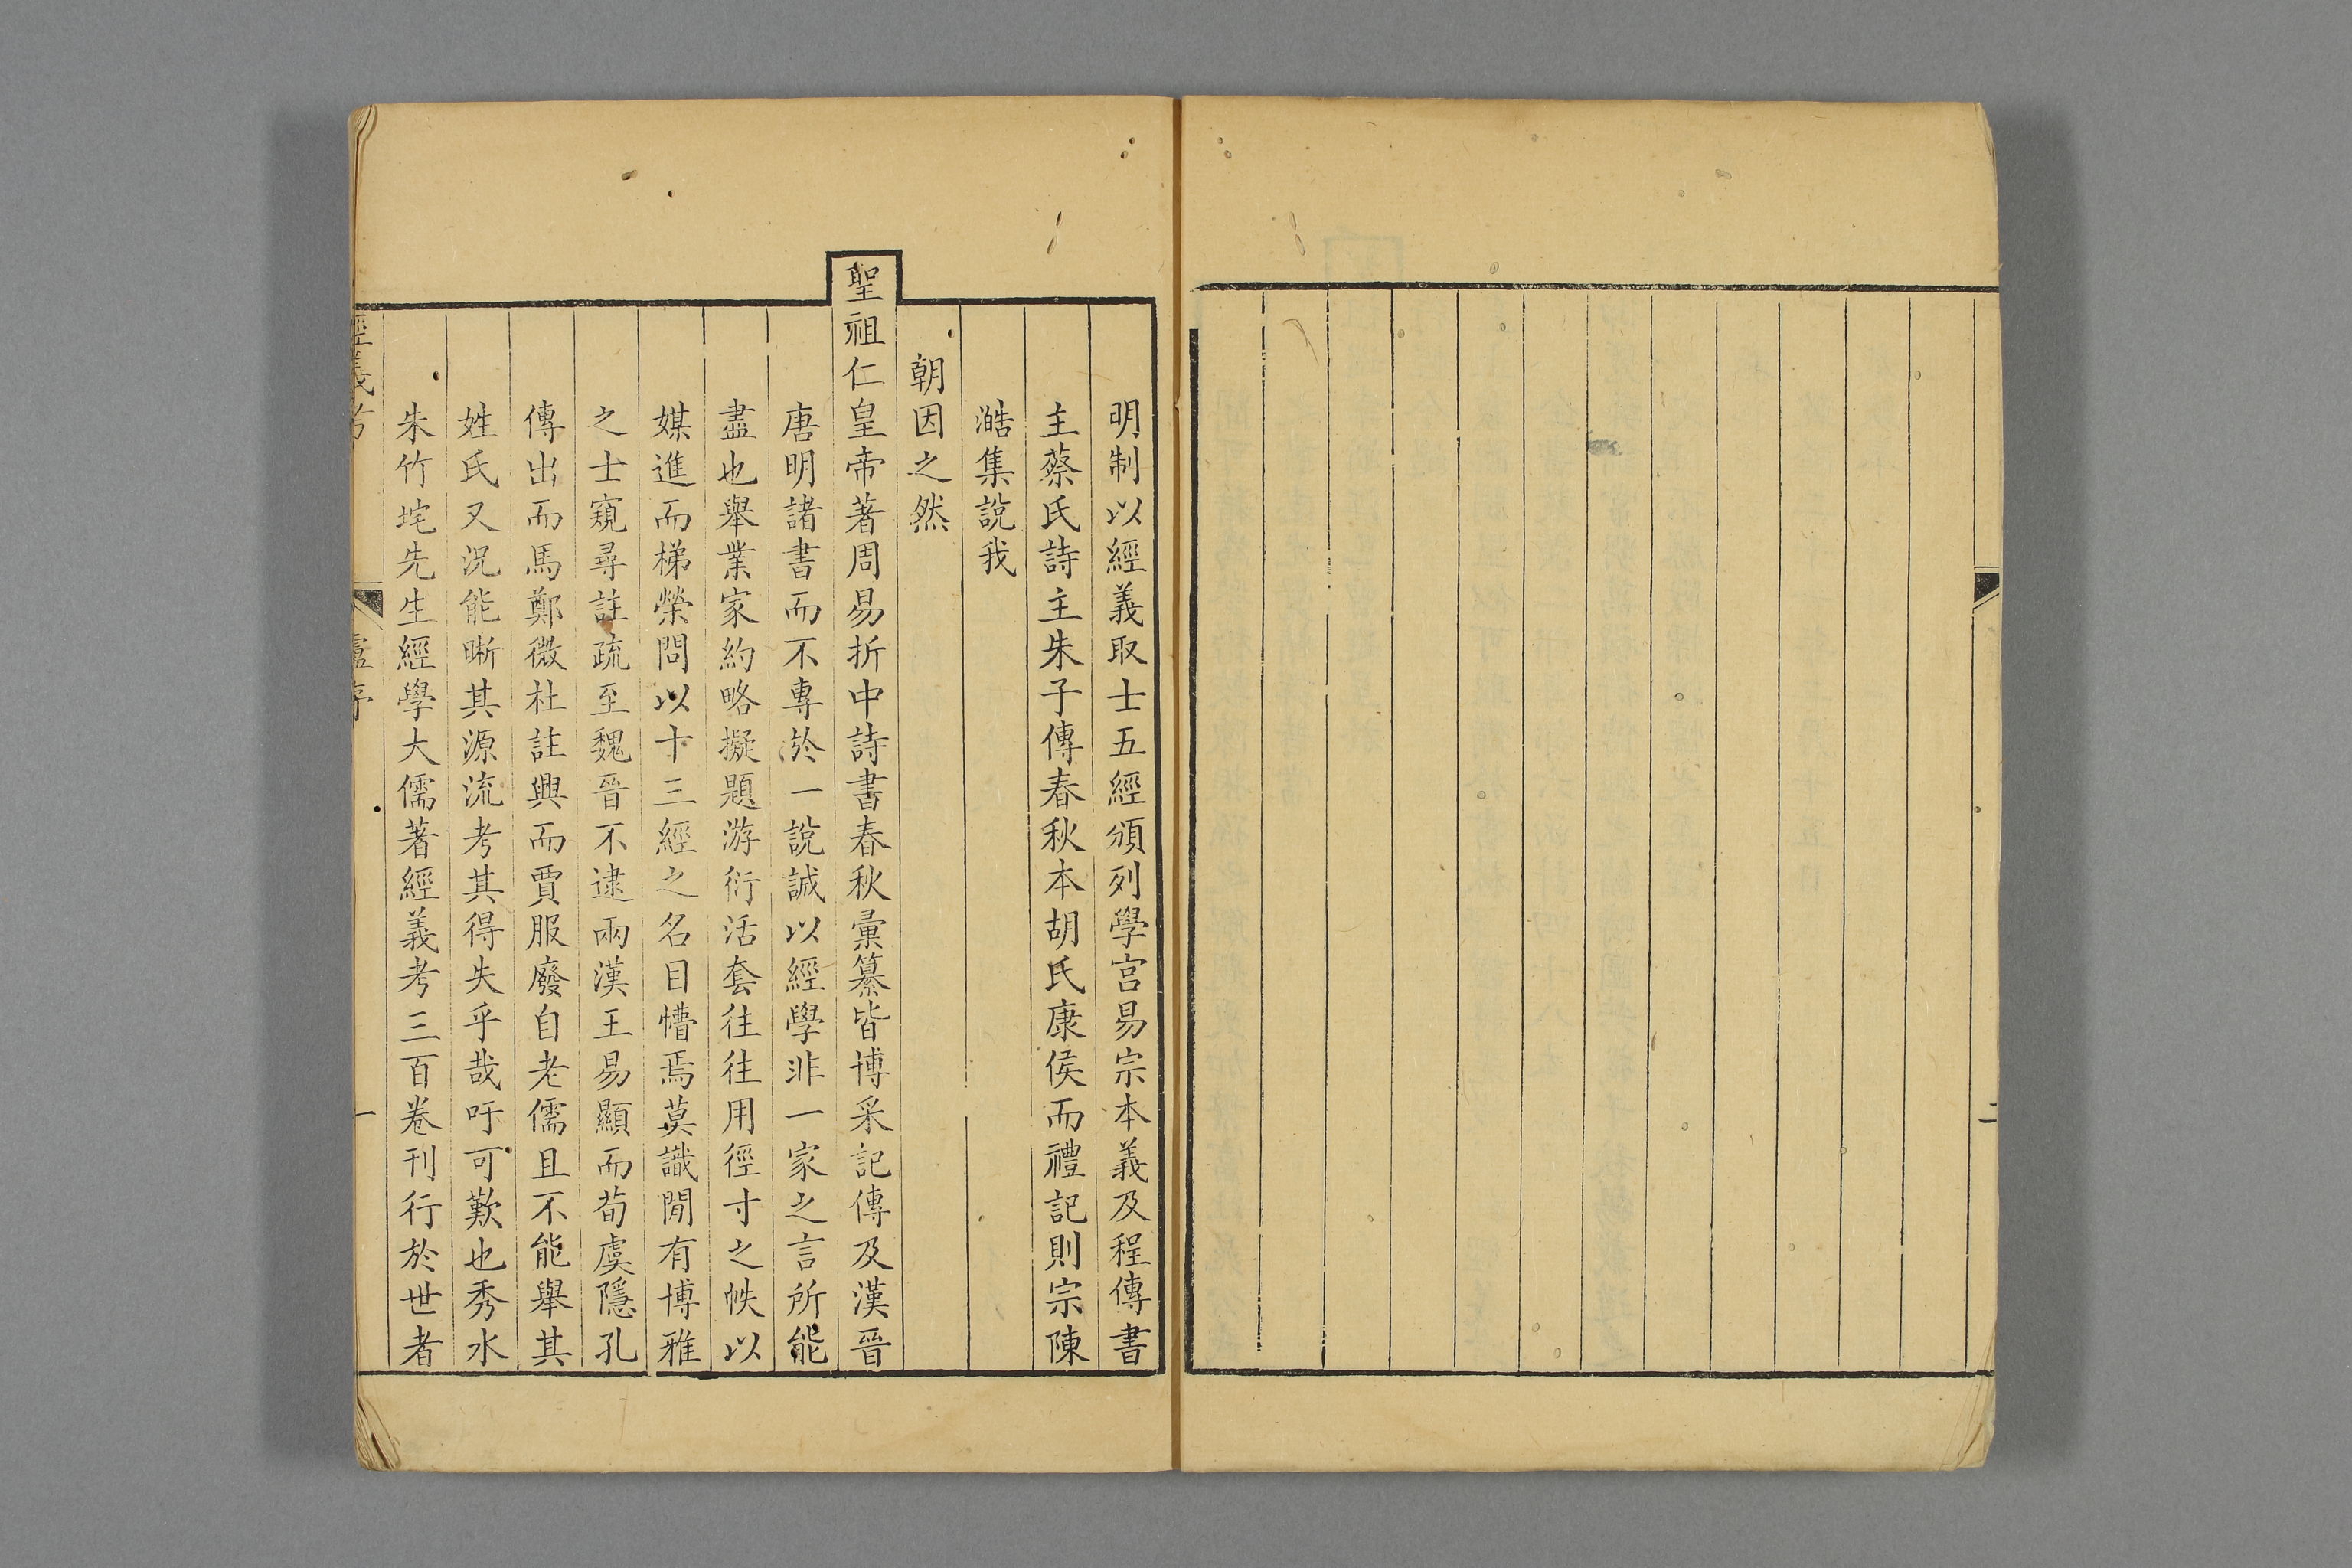 二
明制以經義取士五經頒列學宮易宗本義及程傳書
主蔡氏詩主朱子傳春秋本胡氏康侯而禮記則宗陳
澔集說我
朝因之然
聖祖仁皇帝著周易折中詩書春秋彙纂皆博采記傳及漢晉
唐明諸書而不專於一說誠以經學非一家之言所能
盡也舉業家約略擬題游衍活套往往用徑寸之帙以
媒進而梯榮問以十三經之名目懵焉莫識閒有博雅
之士窺尋註疏至魏晉不逮兩漢王易顯而荀虞隱孔
傳出而馬鄭微杜註興而賈服廢自老儒且不能舉其
姓氏又況能晰其源流考其得失乎哉吁可歎也秀水
朱竹垞先生經學大儒著經義考三百卷刊行於世者
經義考 盧序 一